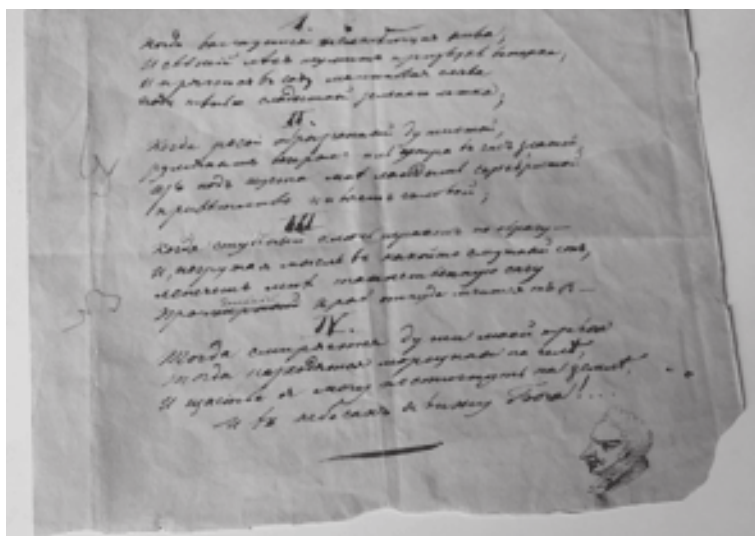 I.
Когда волнуется желтѣющая нива,
И свѣжій лѣсъ шумитъ при звукѣ вѣтерка,
И прячется въ саду малиновая слива
Подъ тѣнью сладостной зеленаго листка;
II.
Когда росой обрызганный душистой,
Румянымъ вечеромъ иль утра въ часъ златой,
Изъ подъ куста мнѣ ландышъ серебристой
Привѣтливо киваетъ головой;
III
Когда студеный ключь играетъ по оврагу
И, погружая мысль въ какой то смутный сонъ,
Лепечетъ мнѣ таинственную сагу
Про край откуда мчится онъ —
IV.
Тогда смиряется души моей тревога
Тогда расходятся морщины на челѣ,
И щастье я могу постигнуть на землѣ,
И въ небесахъ я вижу Бога!...